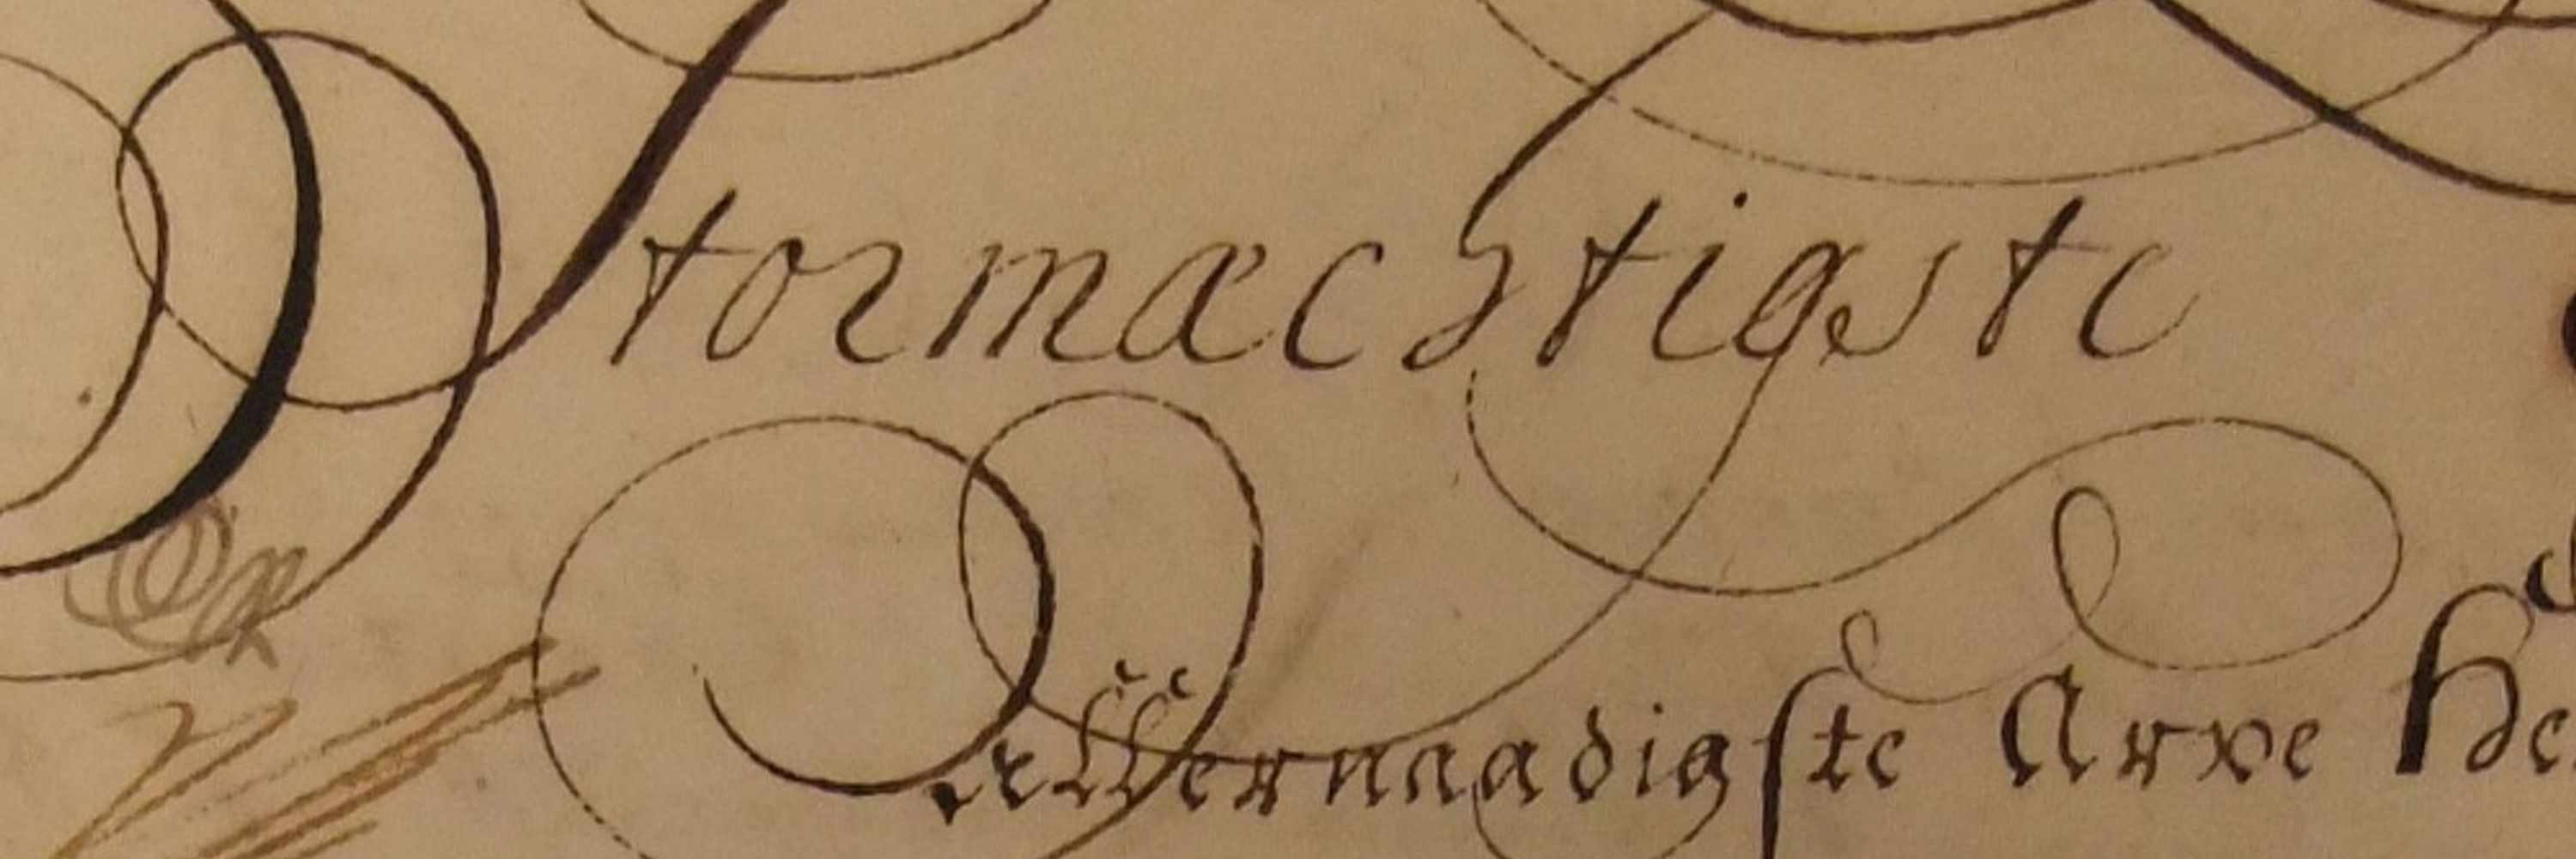 Stormæchtigste
allernaadigste Arve He